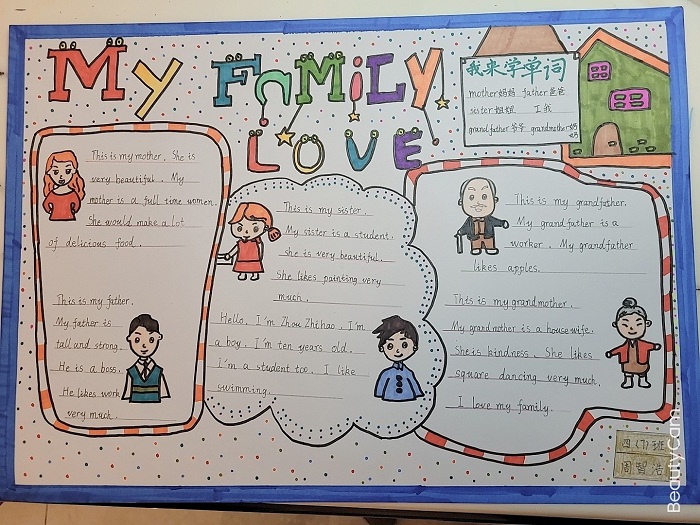 My FaMiLy
LOVE
我来学单词
mother妈妈 father爸爸
sister姐姐 I我
grandfather爷爷 grandmother奶奶
This is my mother. She is
very beautiful. My
mother is a full time women.
She would make a lot
of delicious food.
This is my father.
My father is
tall and strong.
He is a boss.
He likes work
very much.
This is my sister.
My sister is a student.
she is very beautiful.
She likes painting very
much.
Hello, I'm Zhou Zhihao, I'm
a boy, I'm ten years old.
I'm a student too, I like
swimming.
This is my grandfather.
My grandfather is a
worker. My grandfather
likes apples.
This is my grandmother.
My grandmother is a housewife.
She is kindness. She likes
square dancing very much.
I love my family.
四(7)班
周智浩
BeautyCam